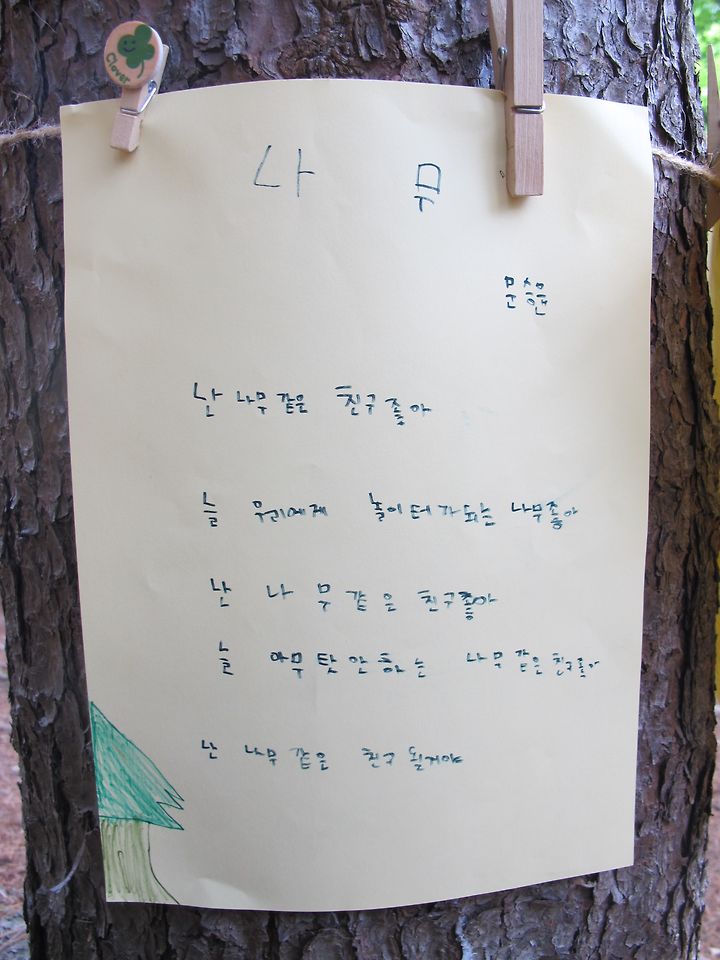 Clover
나 무
문송현
난 나무 같은 친구 좋아
늘 우리에게 놀이터가되는 나무좋아
난 나 무 같 은 친구좋아
늘 아무 탓 안 하는 나무 같은 친구좋아
난 나무 같은 친구 될거야